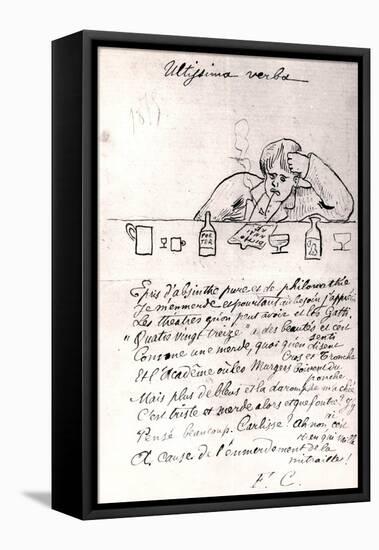 Ultissima verba
POR
TER
Epris d'absinthe pure et de philomathie
Je m'emmerde et pourtant au besoin j'apprécie
Les theatres qu'on peut avoir et les Gatti.
"Quatre vingt treize" a des beautés et c'est senti
Comme une merde, quoi qu'en disent Cros et Tronche
Et l'Academe ou les Murgers boivent du ponche
Mais plus de bleus et la daromphe m'a chié
C'est triste et merde alors et que foutre? J'y ai
Pensé beaucoup. Carlisse? Ah non c'est rien qui vaille
A cause de l'emmerdement de la mitraille!
F. C.